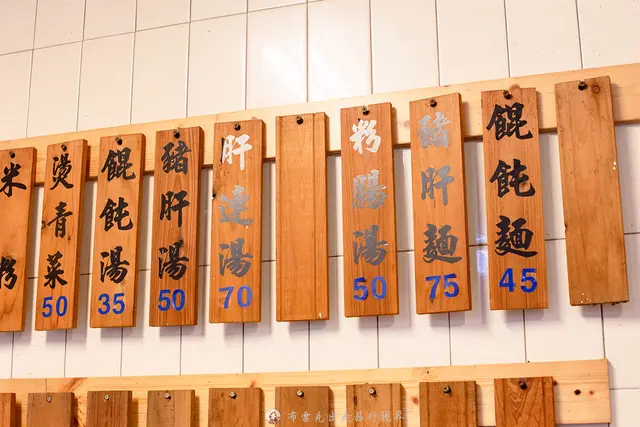 米粉
燙青菜
50
餛飩湯
35
豬肝湯
50
肝連湯
70
粉腸湯
50
豬肝麵
75
餛飩麵
45